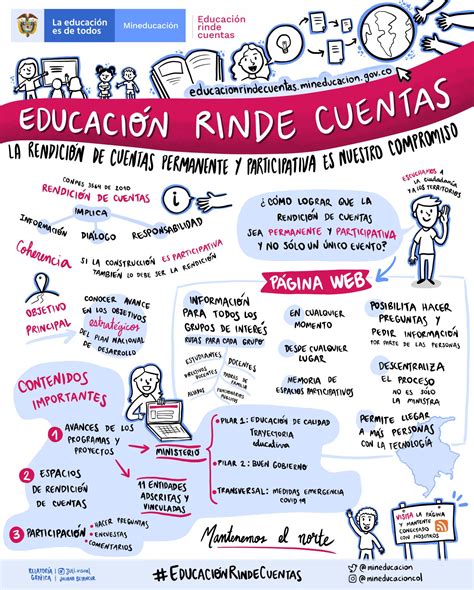 La educación
es de todos
Mineducación
Educación
rinde
cuentas
educacionrindecuentas.mineducacion.gov.co
EDUCACIÓN RINDE CUENTAS
LA RENDICIÓN DE CUENTAS PERMANENTE Y PARTICIPATIVA ES NUESTRO COMPROMISO
CONPES 3564 DE 2010
RENDICIÓN DE CUENTAS
IMPLICA
INFORMACIÓN
DIÁLOGO
RESPONSABILIDAD
i
¿CÓMO LOGRAR QUE LA
RENDICIÓN DE CUENTAS
SEA PERMANENTE Y PARTICIPATIVA
Y NO SÓLO UN ÚNICO EVENTO?
ESCUCHAMOS A
LA CIUDADANÍA
Y A LOS TERRITORIOS
Coherencia
SI LA CONSTRUCCIÓN ES PARTICIPATIVA
TAMBIÉN LO DEBE SER LA RENDICIÓN
OBJETIVO
PRINCIPAL
CONOCER AVANCE
EN LOS OBJETIVOS
estratégicos
DEL PLAN NACIONAL
DE DESARROLLO
PÁGINA WEB
INFORMACIÓN
PARA TODOS LOS
GRUPOS DE INTERÉS
RUTAS PARA CADA GRUPO
ESTUDIANTES
DOCENTES
DIRECTIVOS
DOCENTES
PADRES DE
FAMILIA
ALIADOS
FUNCIONARIOS
PÚBLICOS
EN CUALQUIER
MOMENTO
DESDE CUALQUIER
LUGAR
MEMORIA DE
ESPACIOS PARTICIPATIVOS
POSIBILITA HACER
PREGUNTAS Y
PEDIR INFORMACIÓN
POR PARTE DE LAS PERSONAS
DESCENTRALIZA
EL PROCESO
NO ES SÓLO
LA MINISTRA
PERMITE LLEGAR
A MÁS PERSONAS
CON LA TECNOLOGÍA
CONTENIDOS
IMPORTANTES
1 AVANCES DE LOS
PROGRAMAS Y
PROYECTOS
MINISTERIO
11 ENTIDADES
ADSCRITAS Y
VINCULADAS
• PILAR 1: EDUCACIÓN DE CALIDAD
TRAYECTORIA
educativa
• PILAR 2: BUEN GOBIERNO
• TRANSVERSAL: MEDIDAS EMERGENCIA
COVID 19
2 ESPACIOS
DE RENDICIÓN
DE CUENTAS
3 PARTICIPACIÓN
• HACER PREGUNTAS
• ENCUESTAS
• COMENTARIOS
Mantenemos el norte
VISITA LA PÁGINA
Y MANTENTE
CONECTADO
CON NOSOTROS
RELATORÍA
GRÁFICA
#EDUCACIÓNRINDECUENTAS
@mineducacion
@mineducacioncol